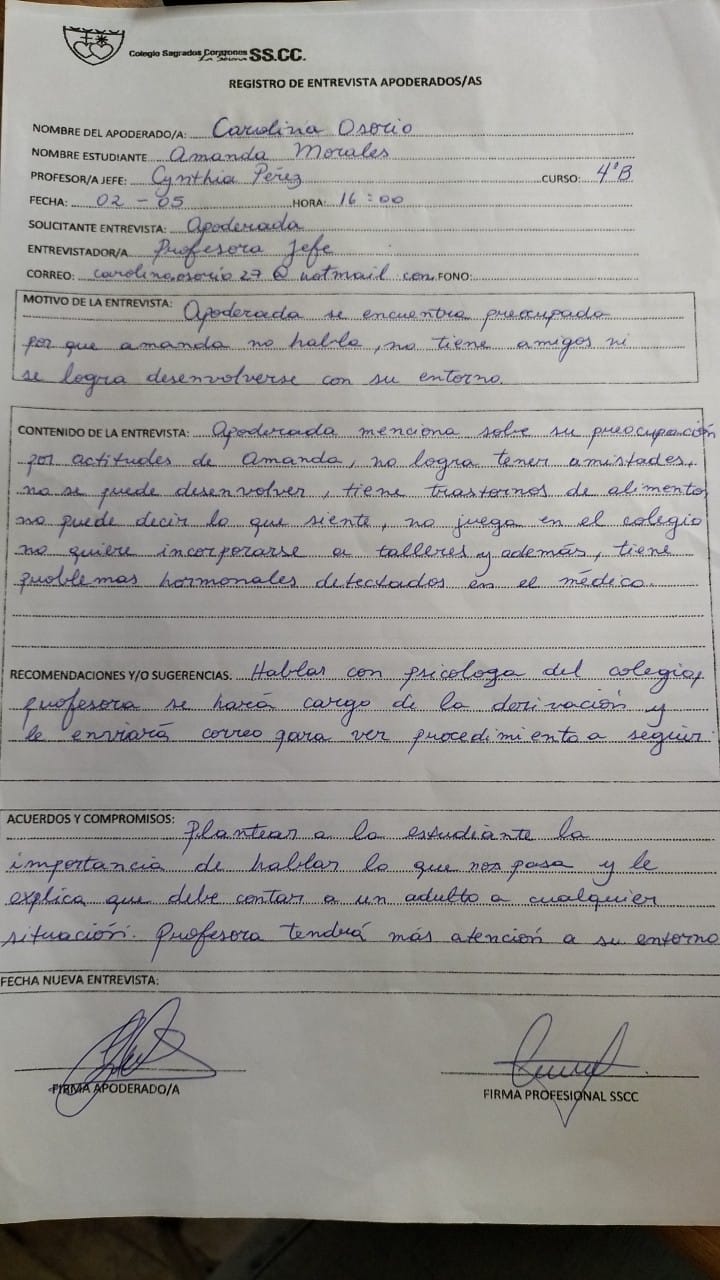 Colegio Sagrados Corazones SS.CC.
La Serena
REGISTRO DE ENTREVISTA APODERADOS/AS
NOMBRE DEL APODERADO/A: Carolina Osorio
NOMBRE ESTUDIANTE Amanda Morales
PROFESOR/A JEFE: Cynthia Pérez CURSO: 4°B
FECHA: 02 - 05 HORA: 16:00
SOLICITANTE ENTREVISTA: Apoderada
ENTREVISTADOR/A Profesora Jefe
CORREO: carolinaosorio27@hotmail com FONO:
MOTIVO DE LA ENTREVISTA: Apoderada se encuentra preocupada
por que amanda no habla, no tiene amigos ni
se logra desenvolverse con su entorno.
CONTENIDO DE LA ENTREVISTA: Apoderada menciona sobre su preocupación
por actitudes de Amanda, no logra tener amistades,
no se puede desenvolver, tiene trastornos de alimentos
no puede decir lo que siente, no juega en el colegio
no quiere incorporarse a talleres y además, tiene
problemas hormonales detectados en el médico.
RECOMENDACIONES Y/O SUGERENCIAS. Hablar con psicologa del colegio,
profesora se hará cargo de la derivación y
le enviará correo para ver procedimiento a seguir.
ACUERDOS Y COMPROMISOS: Plantear a la estudiante la
importancia de hablar lo que nos pasa y le
explica que debe contar a un adulto a cualquier
situación. Profesora tendrá más atención a su entorno
FECHA NUEVA ENTREVISTA:
FIRMA APODERADO/A
FIRMA PROFESIONAL SSCC